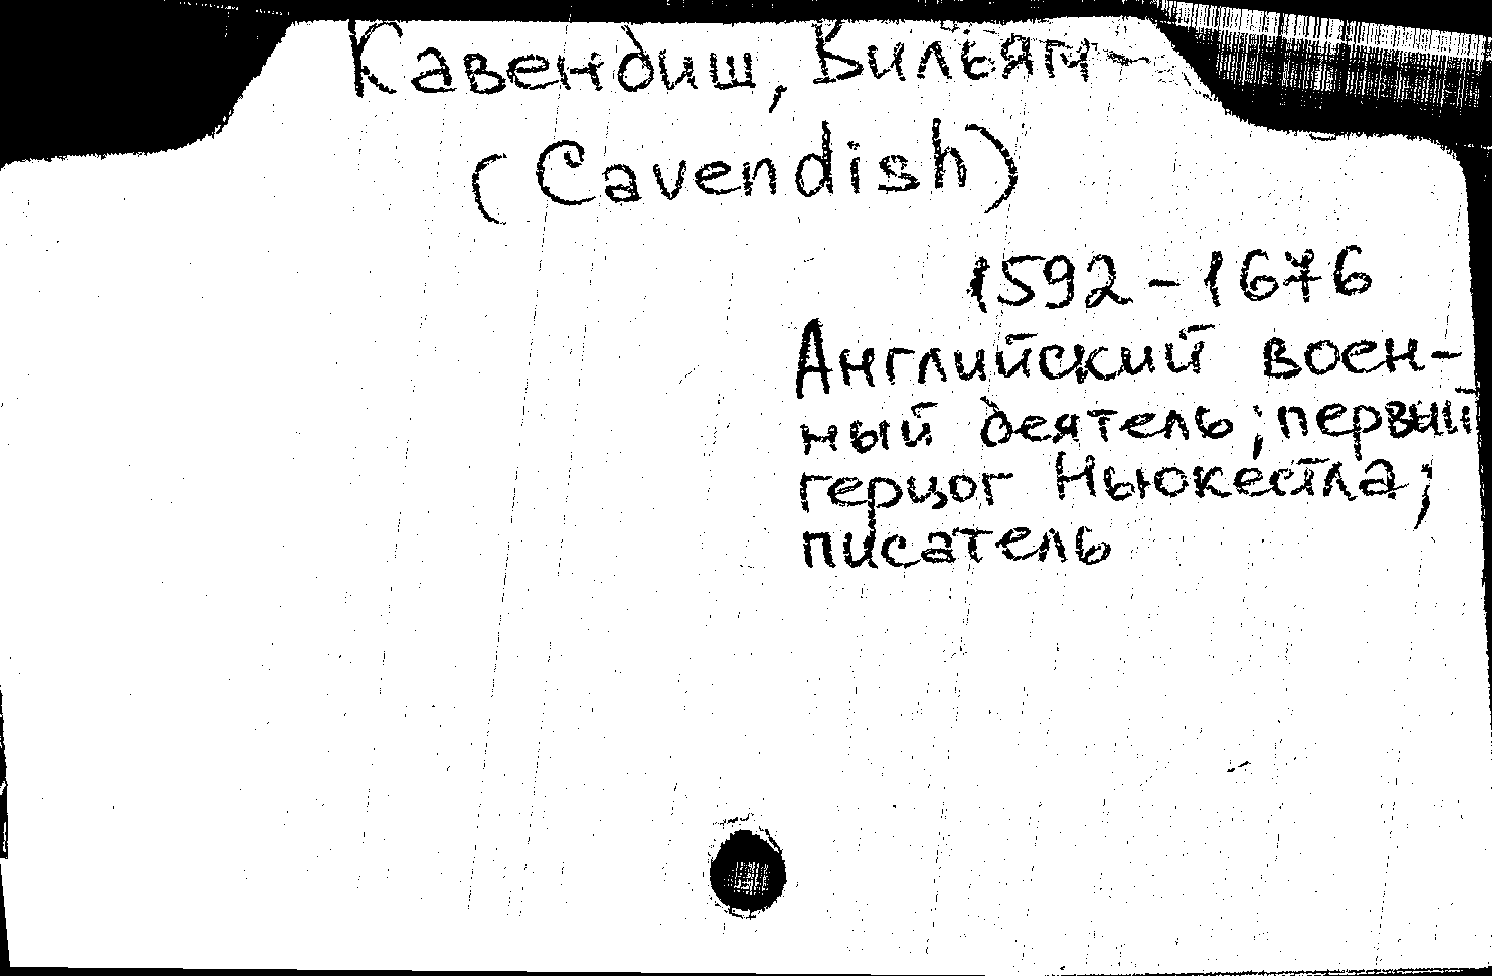 Кавендиш, Вильям
(Cavendish)
1592-1676
Английский воен-
ный деятель; первый
герцог Ньюкестла;
писатель